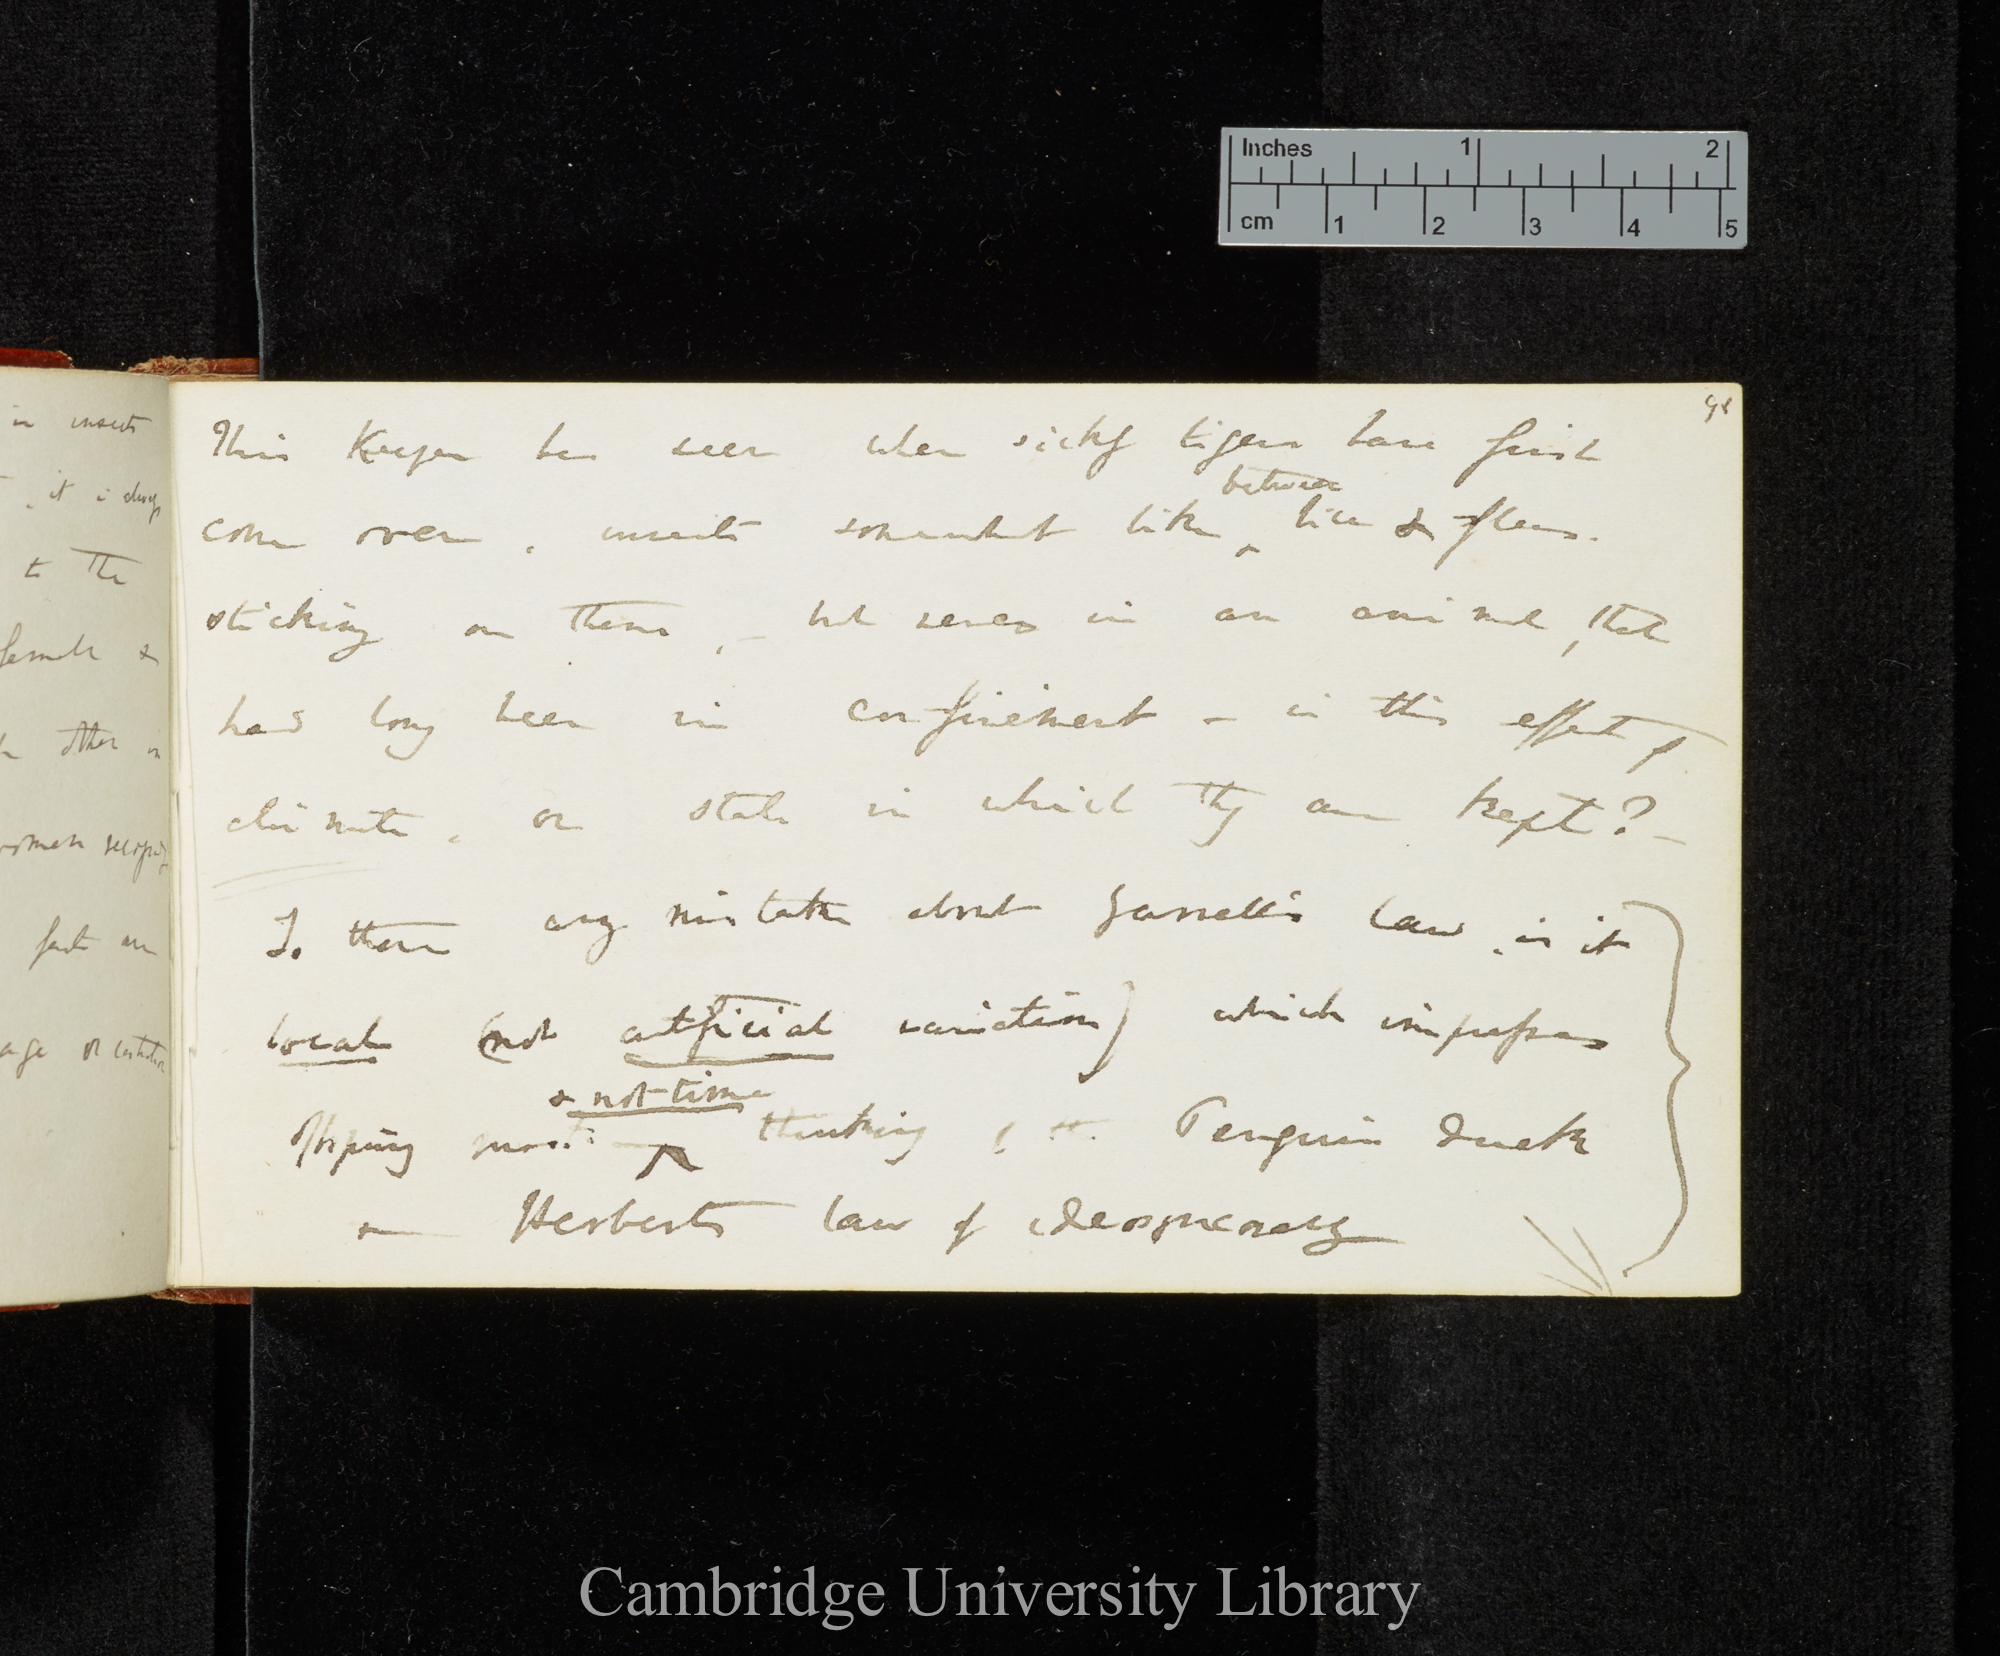 Inches 1 2
cm 1 2 3 4 5
98
in insects
it is always
to the
female &
other in
women
fact
age or
This Keeper has seen when sickly tigers have first
come over, insects somewhat like ‸ between lice & fleas.
sticking on them, – but never in an animal, that
had long been in confinement – is this effect of
climate, or state in which they are kept? –
Is there any mistake about Yarrell's law, is it
local (not artificial variation) which impresses
offspring most ‸ & not time thinking of Penguin duck
Herberts law of ideosyncrasy
Cambridge University Library